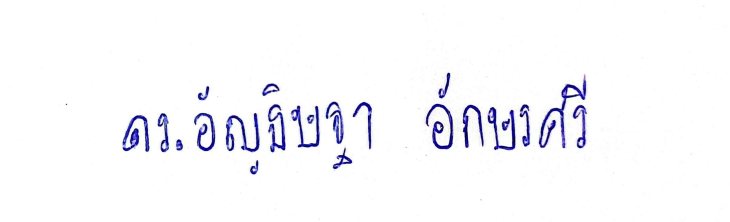 ดร.อัญธิษฐา อักษรศรี